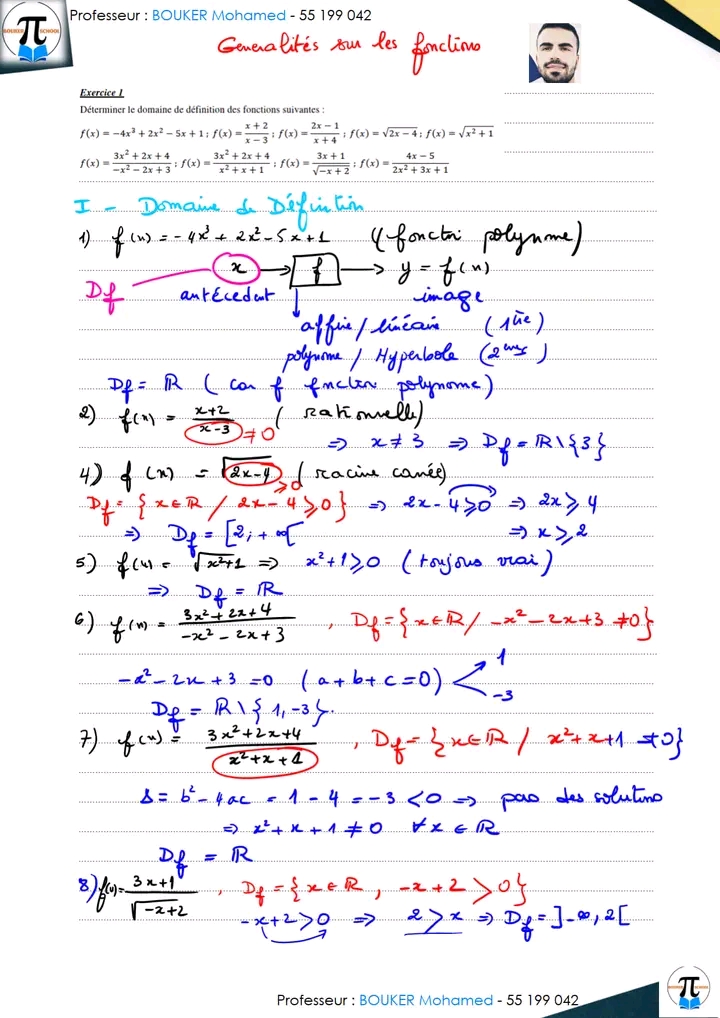 Professeur : BOUKER Mohamed - 55 199 042
BOUKER π SCHOOL
Generalités sur les fonctions
Exercice 1
Déterminer le domaine de définition des fonctions suivantes :
f(x) = −4x³ + 2x² − 5x + 1 ; f(x) = (x + 2)/(x − 3) ; f(x) = (2x − 1)/(x + 4) ; f(x) = √(2x − 4) ; f(x) = √(x² + 1)
f(x) = (3x² + 2x + 4)/(−x² − 2x + 3) ; f(x) = (3x² + 2x + 4)/(x² + x + 1) ; f(x) = (3x + 1)/√(−x + 2) ; f(x) = (4x − 5)/(2x² + 3x + 1)
I - Domaine de Définition
1) f(x) = -4x³ + 2x² - 5x + 1 (fonction polynome)
Df x → f → y = f(x)
antécedent image
affine / linéaire (1ière)
polynome / Hyperbole (2ème)
Df = ℝ (car f fnction polynome)
2) f(x) = (x+2)/(x-3) ≠ 0 (rationnelle)
⇒ x ≠ 3 ⇒ Df = ℝ\{3}
4) f(x) = √(2x-4) ≥0 (racine carrée)
Df = {x∈ℝ / 2x-4 ≥ 0} ⇒ 2x-4 ≥ 0 ⇒ 2x ≥ 4
⇒ Df = [2; +∞[ ⇒ x ≥ 2
5) f(x) = √(x²+1) ⇒ x²+1 ≥ 0 (toujous vrai)
⇒ Df = ℝ
6) f(x) = (3x²+2x+4)/(-x²-2x+3) , Df = {x∈ℝ / -x²-2x+3 ≠0}
-x²-2x+3 = 0 (a+b+c=0) 1 -3
Df = ℝ\{1,-3}.
7) f(x) = (3x²+2x+4)/(x²+x+1) , Df = {x∈ℝ / x²+x+1 ≠0}
Δ = b²-4ac = 1-4 = -3 < 0 ⇒ pas des solutions
⇒ x²+x+1 ≠ 0 ∀x ∈ ℝ
Df = ℝ
8) f(x) = (3x+1)/√(-x+2) , Df = {x∈ℝ , -x+2 > 0}
-x+2 > 0 ⇒ 2 > x ⇒ Df = ]-∞, 2[
Professeur : BOUKER Mohamed - 55 199 042
BOUKER π SCHOOL